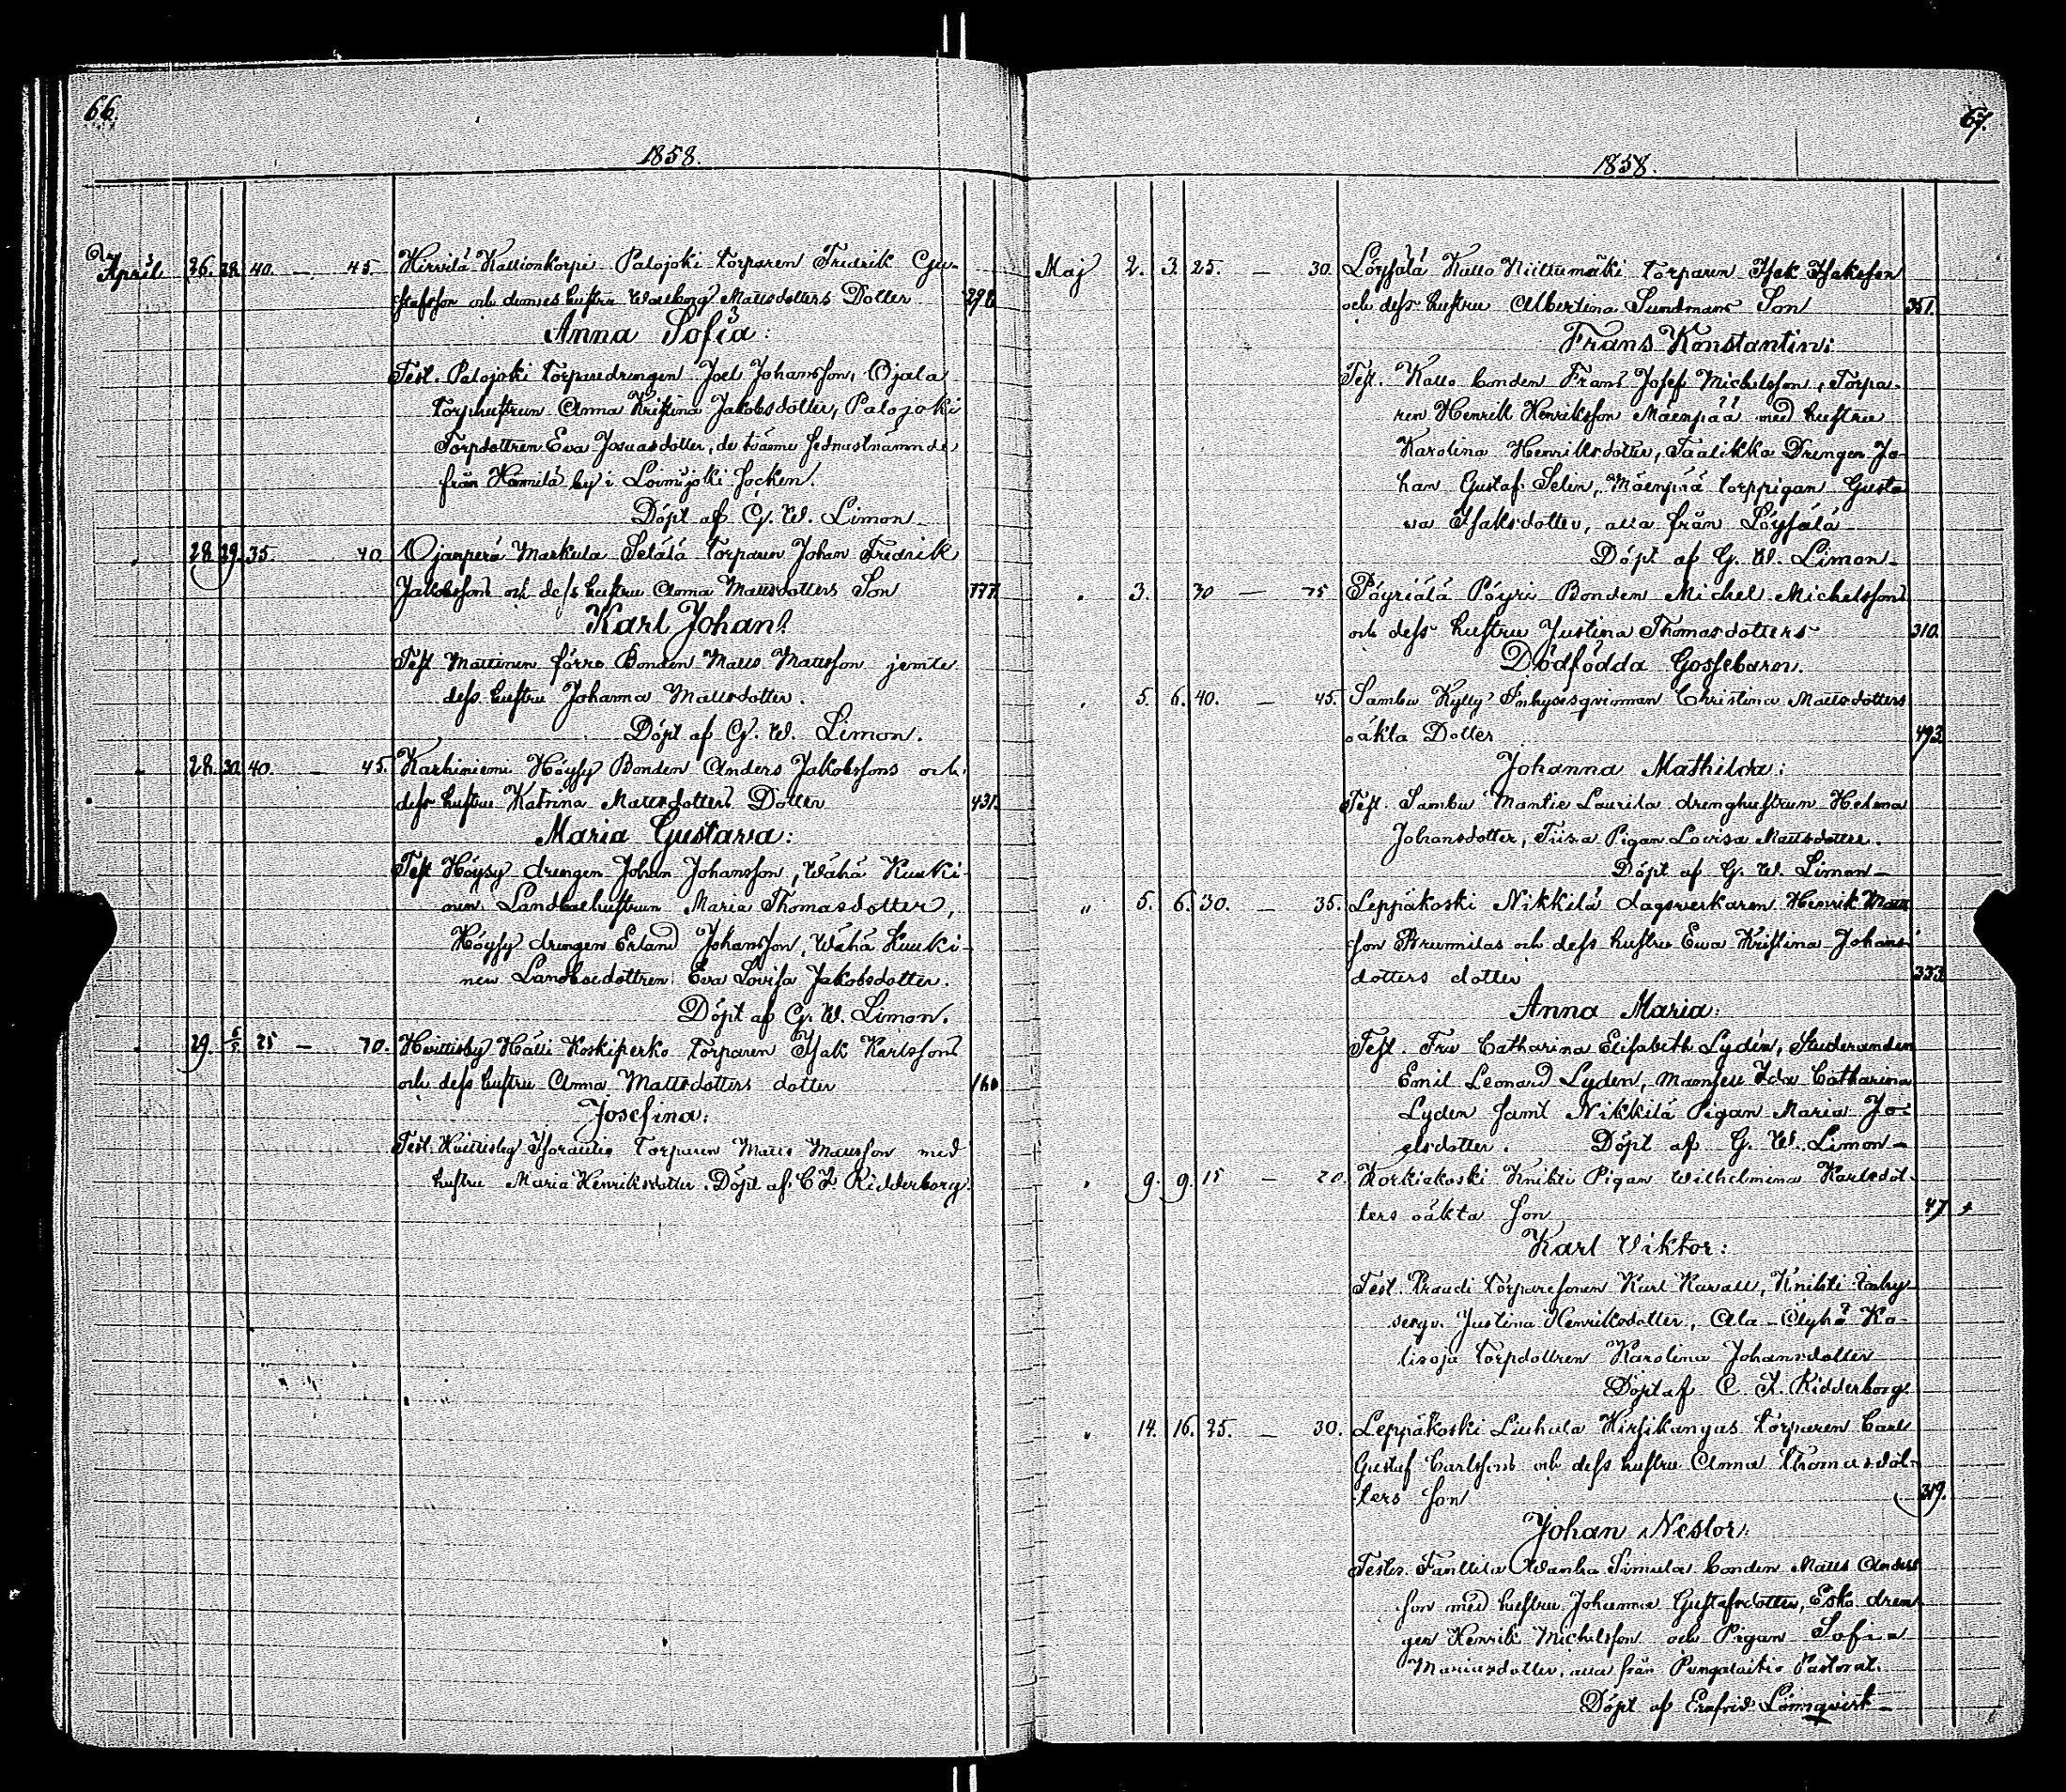 66.
1858.
April 26. 28. 40. — 45. Hirvilä Kallionkorpi Palojoki torparen Fredrik Gu-
stafsson och dennes hustru Walborg Mattsdotters Dotter 298
Anna Sofia:
Test. Palojoki torparedrengen Joel Johansson, Ojala
torphustrun Anna Kristina Jakobsdotter, Palojoki
Torpdottren Eva Josuasdotter, de tvänne sednastnämnde
från by i Loimijoki Socken.
Döpt af G. W. Limon.
28. 29. 35. 40 Ojanperä Markula Setälä torparen Johan Fredrik
Jakobssons och dess hustru Anna Mattsdotters Son 177
Karl Johan:
Test Mattinen förre Bonden Matts Mattsson jemte
dess hustru Johanna Mattsdotter.
Döpt af G. W. Limon.
28. 30. 40. — 45. Karhiniemi Höysy Bonden Anders Jakobssons och
dess hustru Katrina Mattsdotters Dotter 431.
Maria Gustava:
Test Höysy drengen Johan Johansson, Wähä Kuuki-
nen Landboehustrun Maria Thomasdotter,
Höysy drengen Erland Johansson, Wähä Kuuki-
nen Landboedottren Eva Lovisa Jakobsdotter.
Döpt af G. W. Limon.
29. 6/5 25 — 70. Huittisby Hälli Koskiperko torparen Isak Karlssons
och dess hustru Anna Mattsdotters dotter 160
Josefina:
Test. Huittisby torparen Matts Mattsson med
hustru Maria Henriksdotter. Döpt af C. I. Ridderborg.
67.
1858.
Maj 2. 3. 25. — 30. Löysälä Katto Niittumäki torparen Isak Isaksson
och dess hustru Albertina Sundmans Son 351.
Frans Konstantin:
Test. Katto bonden Frans Josef Michelsson, Torpa-
ren Henrik Henriksson Mäenpää med hustru
Karolina Henriksdotter, Taalikka Drengen Jo-
han Gustaf Selin, Mäenpää torppigan Gusta-
va Isaksdotter, alla från Löysälä
Döpt af G. W. Limon.
3. 70 — 75 Pöyriälä Pöyri Bonden Michel Michelssons
och dess hustru Justina Thomasdotters 310.
Dödfödda Gossebarn.
5. 6. 40. — 45. Sambu Kylly Inhysesqvinnan Christina Mattsdotters
oäkta Dotter 493
Johanna Mathilda:
Test. Sambu Mantie Laurila drenghustrun Helena
Johansdotter, Tiisa Pigan Lovisa Mattsdotter.
Döpt af G. W. Limon —
" 5. 6. 30. — 35. Leppäkoski Nikkilä dagsverkaren Henrik Matts
son Brumilas och dess hustru Eva Kristina Johans-
dotters dotter 333
Anna Maria:
Test. Fru Catharina Elisabeth Lydén, Studeranden
Emil Leonard Lyden, Mamsell Ida Catharina
Lyden samt Nikkilä Pigan Maria Jo-
elsdotter. Döpt af G. W. Limon —
9. 9. 15 — 20. Korkiakoski Knihti Pigan Wilhelmina Karlsdot-
ters oäkta Son 47
Karl Viktor:
Test. Praudi torparesonen Karl Karvall, Knihti Inhy-
sesqv. Justina Henriksdotter, Ala-
torpdottren Karolina Johansdotter
Döpt af C. I. Ridderborg.
" 14. 16. 25. — 30. Leppäkoski Liuhala Hirsikangas torparen Carl
Gustaf Carlssons och dess hustru Anna Thomasdot-
ters Son 319.
Johan Nestor:
Testes. Tanttila Wanha Simula bonden Matts Anders
son med hustru Johanna Gustafsdotter, Esko dren-
gen Henrik Michelsson och Pigan Sofia
Mariasdotter, alla från Pungalaitio Pastorat.
Döpt af Ernfrid Lönnqvist —